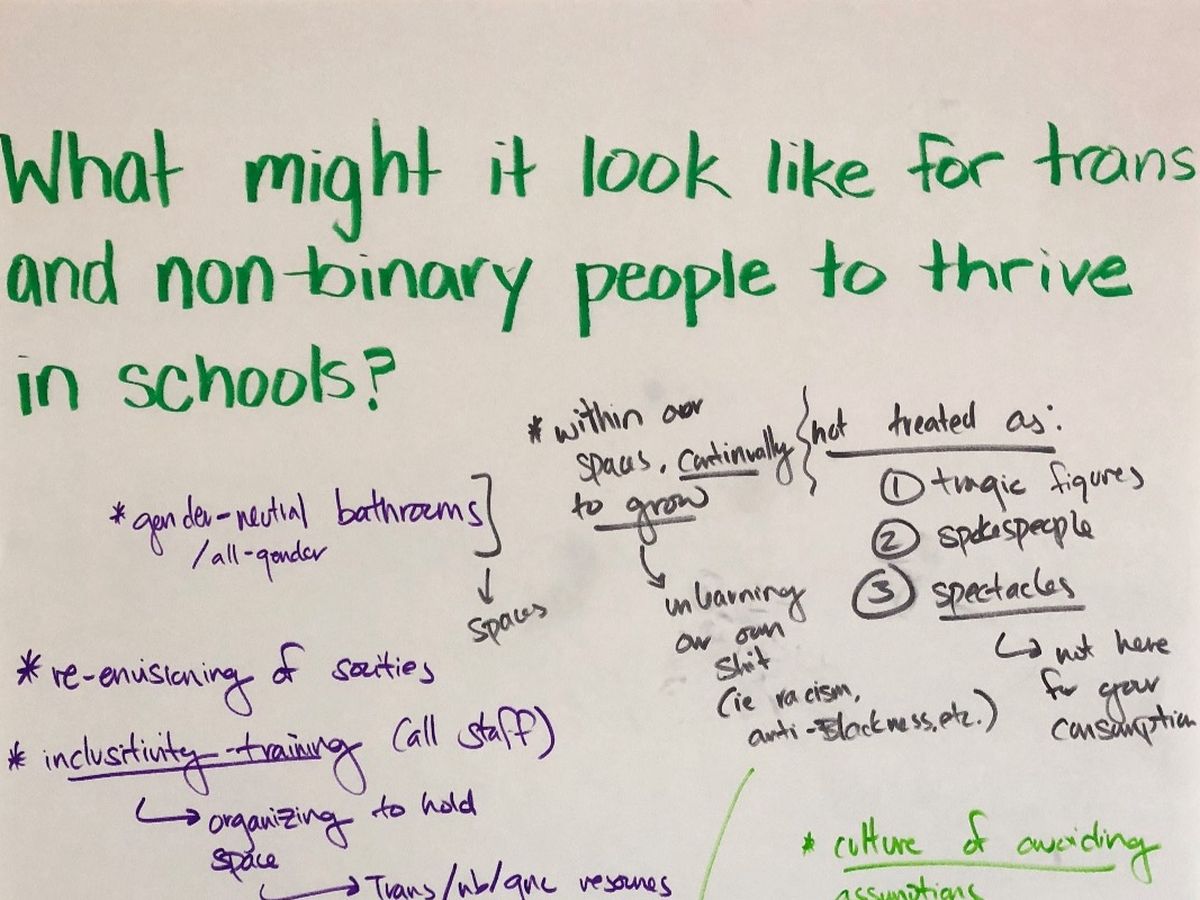 What might it look like for trans
and non-binary people to thrive
in schools?
* gender-neutral bathrooms]
/all-gender
↓
spaces
* re-envisioning of socities
* inclusitivity-training (all staff)
↳ organizing to hold
space
↳ Trans/nb/gnc resources
* within our
spaces, continually
to grow
↳ unlearning
our own
shit
(ie racism,
anti-Blackness, etc.)
} not treated as:
① tragic figures
② spokespeople
③ spectacles
↳ not here
for your
consumption
* culture of avoiding
assumptions